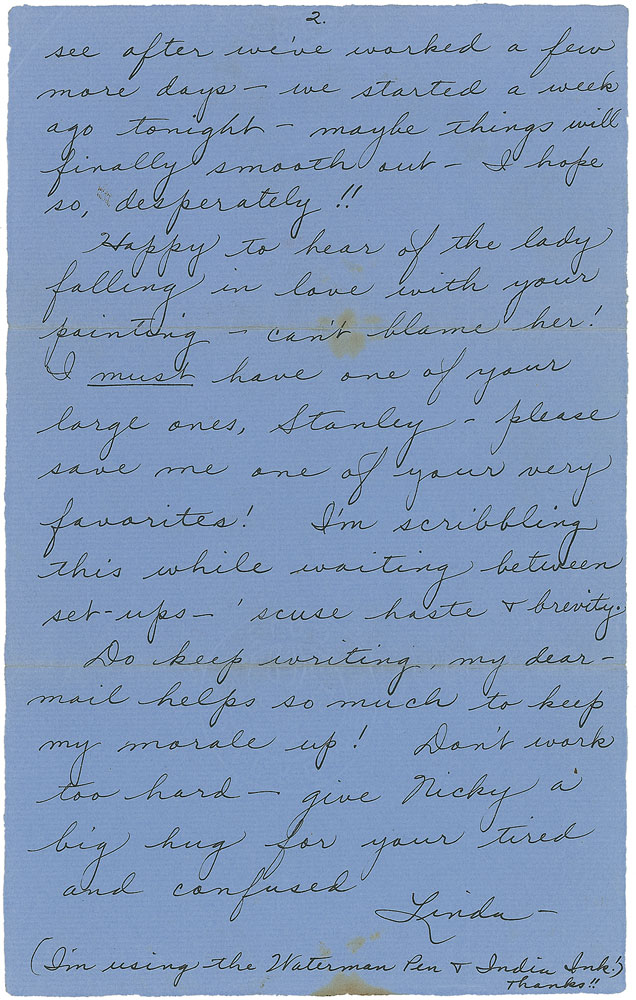 2.
see after we've worked a few
more days – we started a week
ago tonight – maybe things will
finally smooth out – I hope
so, desperately!!
Happy to hear of the lady
falling in love with your
painting – can't blame her!
I must have one of your
large ones, Stanley – please
save me one of your very
favorites! I'm scribbling
this while waiting between
set-ups – 'scuse haste & brevity.
Do keep writing, my dear –
mail helps so much to keep
my morale up! Don't work
too hard – give Nicky a
big hug for your tired
and confused
Linda –
(I'm using the Waterman Pen & India Ink!)
Thanks!!